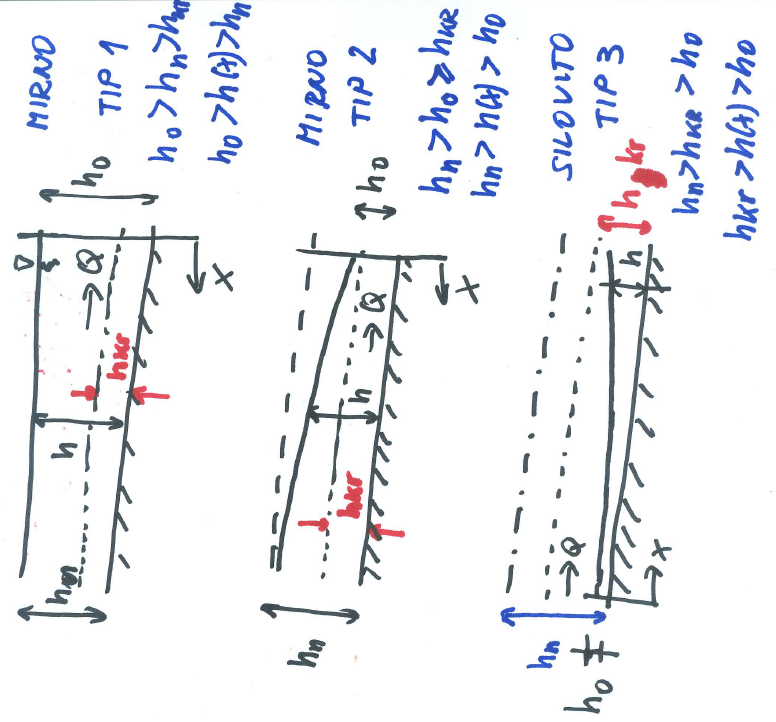 MIRNO
TIP 1
h0 > hn > hkr
h0 > h(x) > hn
h0
x
→ Q
hkr
h
hn
MIRNO
TIP 2
hn > h0 ≥ hKR
hn > h(x) > h0
h0
x
→ Q
h
hkr
hn
SILOVITO
TIP 3
hn > hKR > h0
hkr > h(x) > h0
hkr
h
→ Q
x
hn
h0